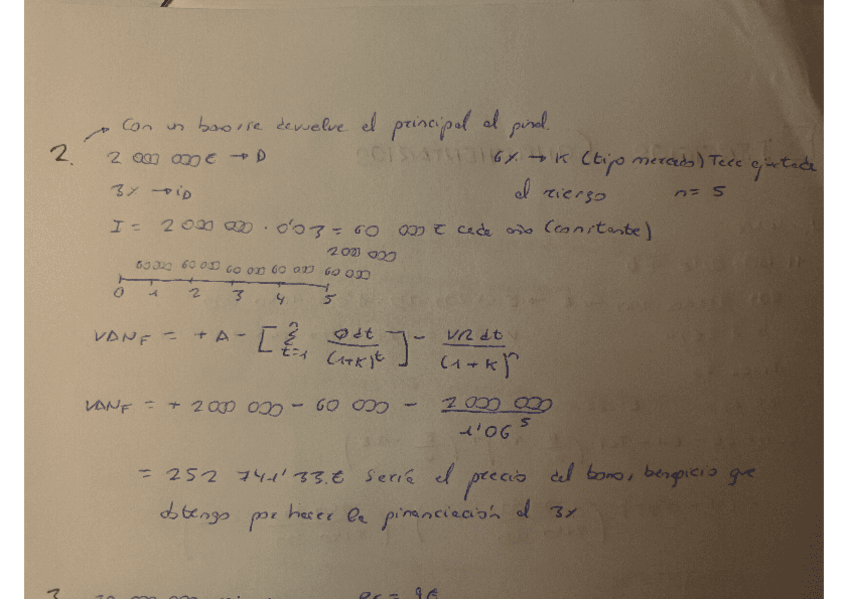 Con un bono se devuelve el principal al final.
2. 2 000 000 € → D 6% → K (tipo mercado) Tasa ajustada
3% → iD al riesgo n = 5
I = 2 000 000 · 0'03 = 60 000 € cada año (constante)
200 000
60 000 60 000 60 000 60 000 60 000
0 1 2 3 4 5
VAN_F = + A - [ Σ t=1 n Qdt / (1+K)^t ] - VRdt / (1+K)^n
VAN_F = + 2000 000 - 60 000 - 2 000 000 / 1'06^5
= 252 741'33 € Sería el precio del bono, beneficio que
obtengo por hacer la financiación al 3%
3.